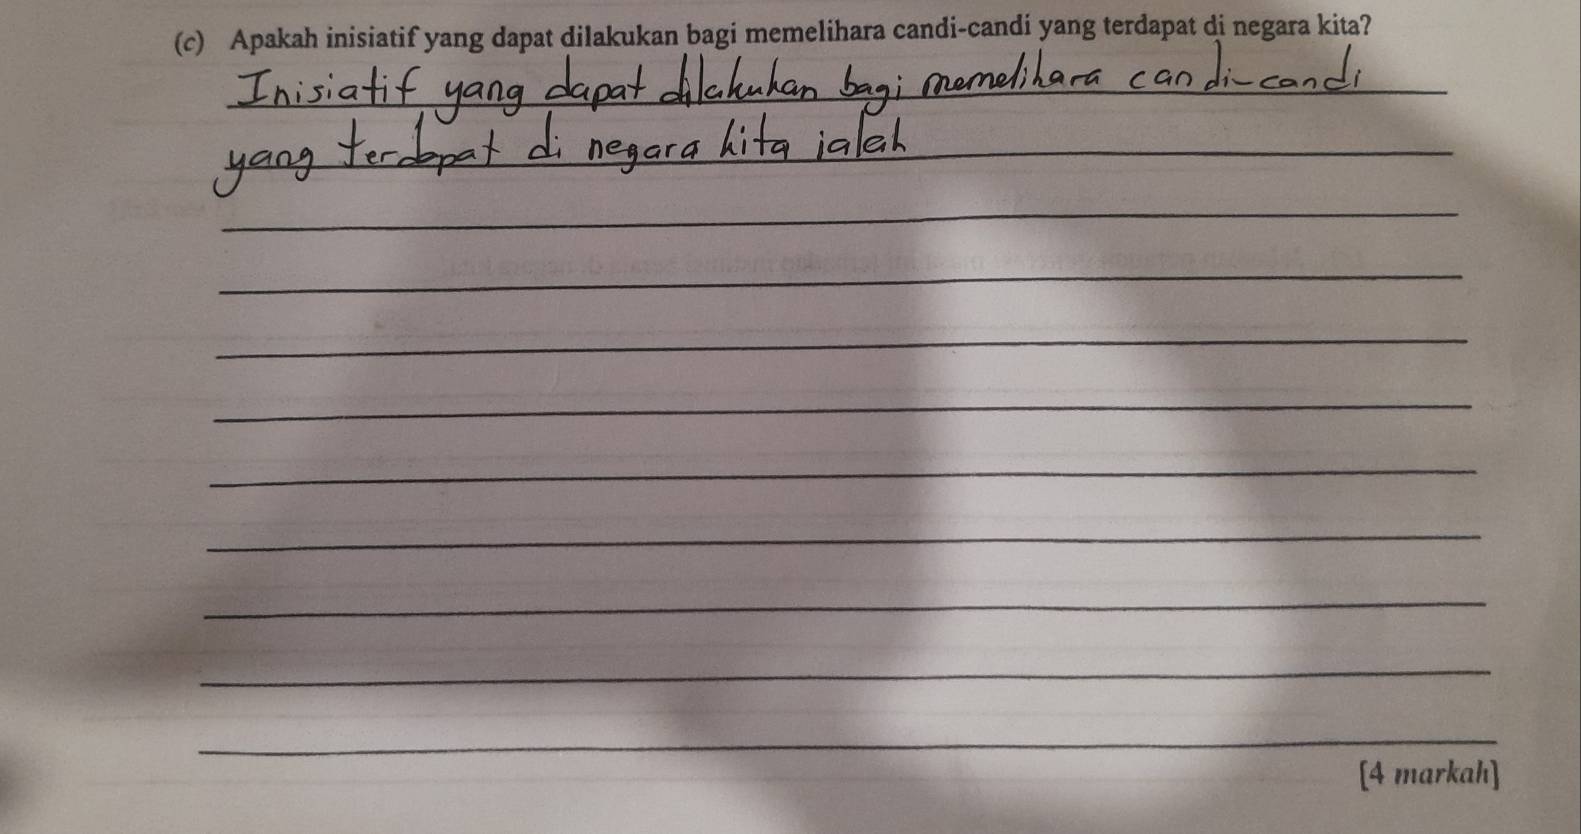 (c) Apakah inisiatif yang dapat dilakukan bagi memelihara candi-candi yang terdapat di negara kita?
Inisiatif yang dapat dilakukan bagi memelihara candi-candi
yang terdapat di negara kita ialah
[4 markah]